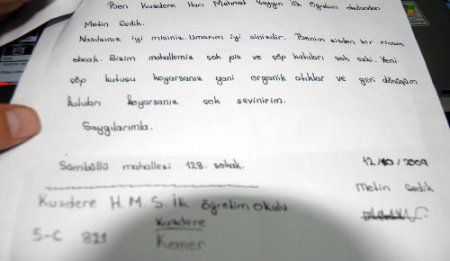 Ben Kuzdere Hacı Mehmet Saygın ilk Öğretim okulundan
Metin Gedik.
Nasılsınız iyi misiniz. Umarım iyi sinizdir. Benim sizden bir ricam
olacak. Bizim mahallemiz çok pis ve çöp kutuları çok eski. Yeni
çöp kutusu koyarsanız yani organik atıklar ve geri dönüşüm
kutuları koyarsanız çok sevinirim.
Saygılarımla.
mahallesi 128. sokak.
12/10/2009
Kuzdere H.M.S İlk öğretim okulu
Metin Gedik
5-C 821
Kuzdere
Kemer